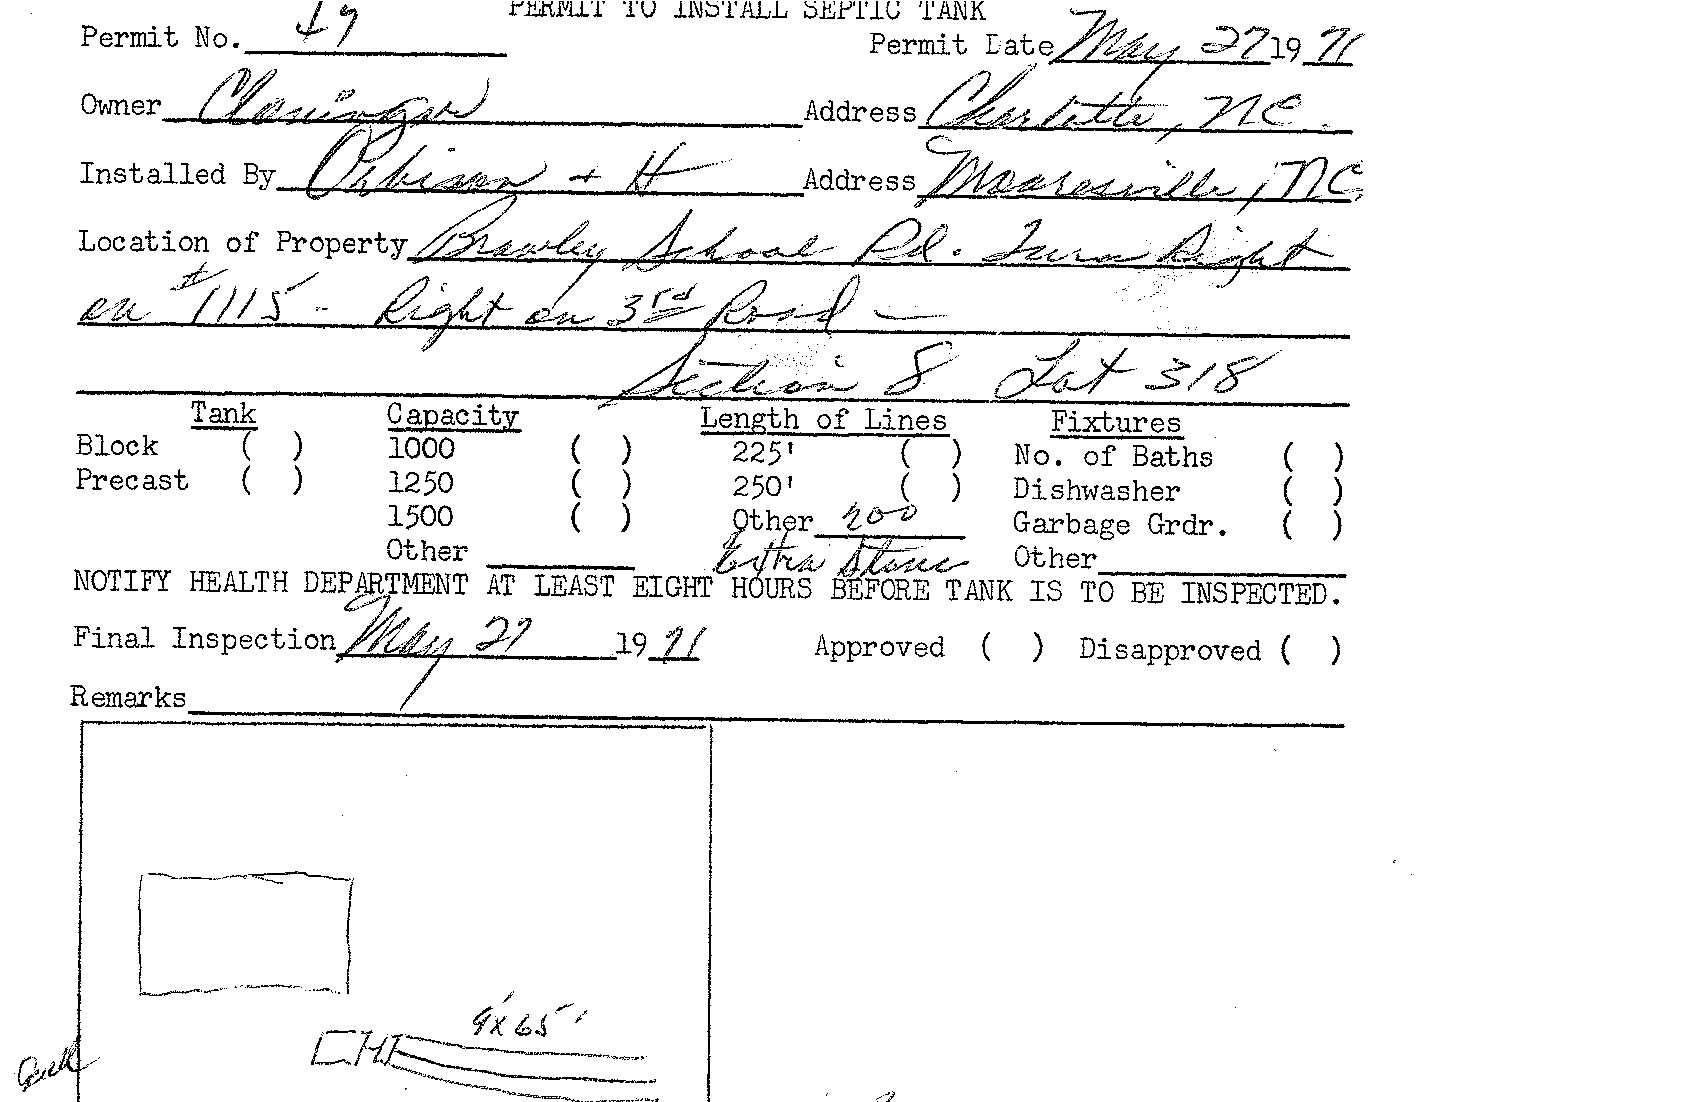 PERMIT TO INSTALL SEPTIC TANK
Permit No. 49 Permit Date May 27 19 71
Owner Address Charlotte, NC.
Installed By Orbison + H Address Mooresville, NC
Location of Property Brawley School Rd. Turn Right
on #1115 - Right on 3rd Road —
Section 8 Lot 318
Tank Capacity Length of Lines Fixtures
Block ( ) 1000 ( ) 225' ( ) No. of Baths ( )
Precast ( ) 1250 ( ) 250' ( ) Dishwasher ( )
1500 ( ) Other 200 Garbage Grdr. ( )
Other Extra Stone Other
NOTIFY HEALTH DEPARTMENT AT LEAST EIGHT HOURS BEFORE TANK IS TO BE INSPECTED.
Final Inspection May 27 19 71 Approved ( ) Disapproved ( )
Remarks